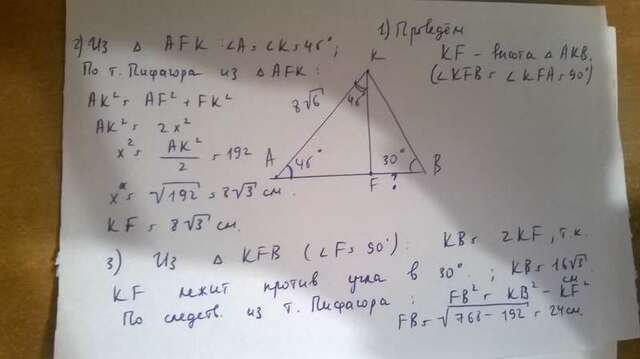 1) Проведём
KF - высота △ AKB.
(∠KFB = ∠KFA = 90°)
2) Из △ AFK : ∠A = ∠K = 45° ;
По т. Пифагора из △ AFK :
AK² = AF² + FK²
AK² = 2x²
x² = AK²/2 = 192
x = √192 = 8√3 см.
KF = 8√3 см.
K
8√6
45°
A
45°
F
?
30°
B
3) Из △ KFB (∠F = 90°) : KB = 2KF, т.к.
KF лежит против угла в 30° ; KB = 16√3 см
По следств. из т. Пифагора : FB² = KB² - KF²
FB = √768 - 192 = 24 см